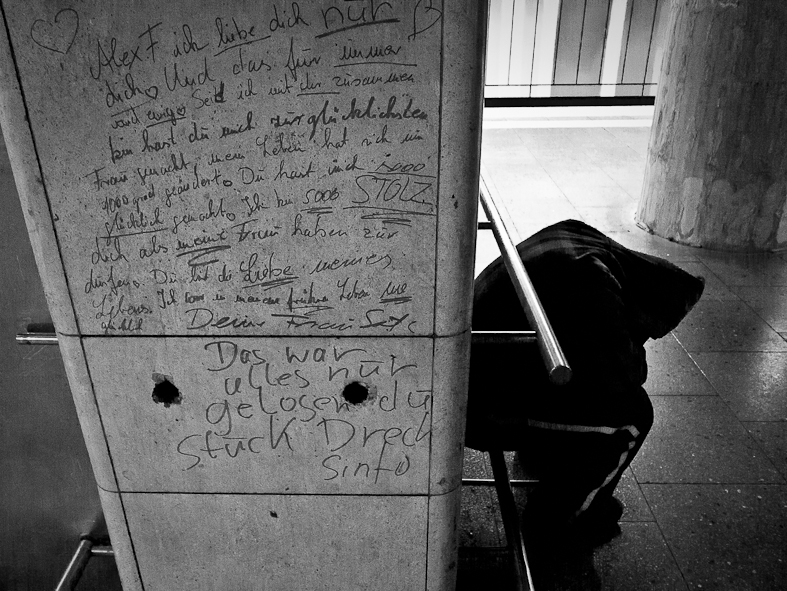 Alex F ich liebe dich nur
dich Und das für immer
und ewig Seid ich mit dir zusammen
bin hast du mich zur glücklichsten
Frau gemacht mein Leben hat sich um
1000 grad geändert Du hast mich
glücklich gemacht Ich bin 5000 STOLZ
dich als meine Frau haben zur
dürfen Du bist die Liebe meines
Lebens. Ich war in meinem frühren Leben nie
Deine Frau
Das war
alles nur
gelogen du
Stück Drech